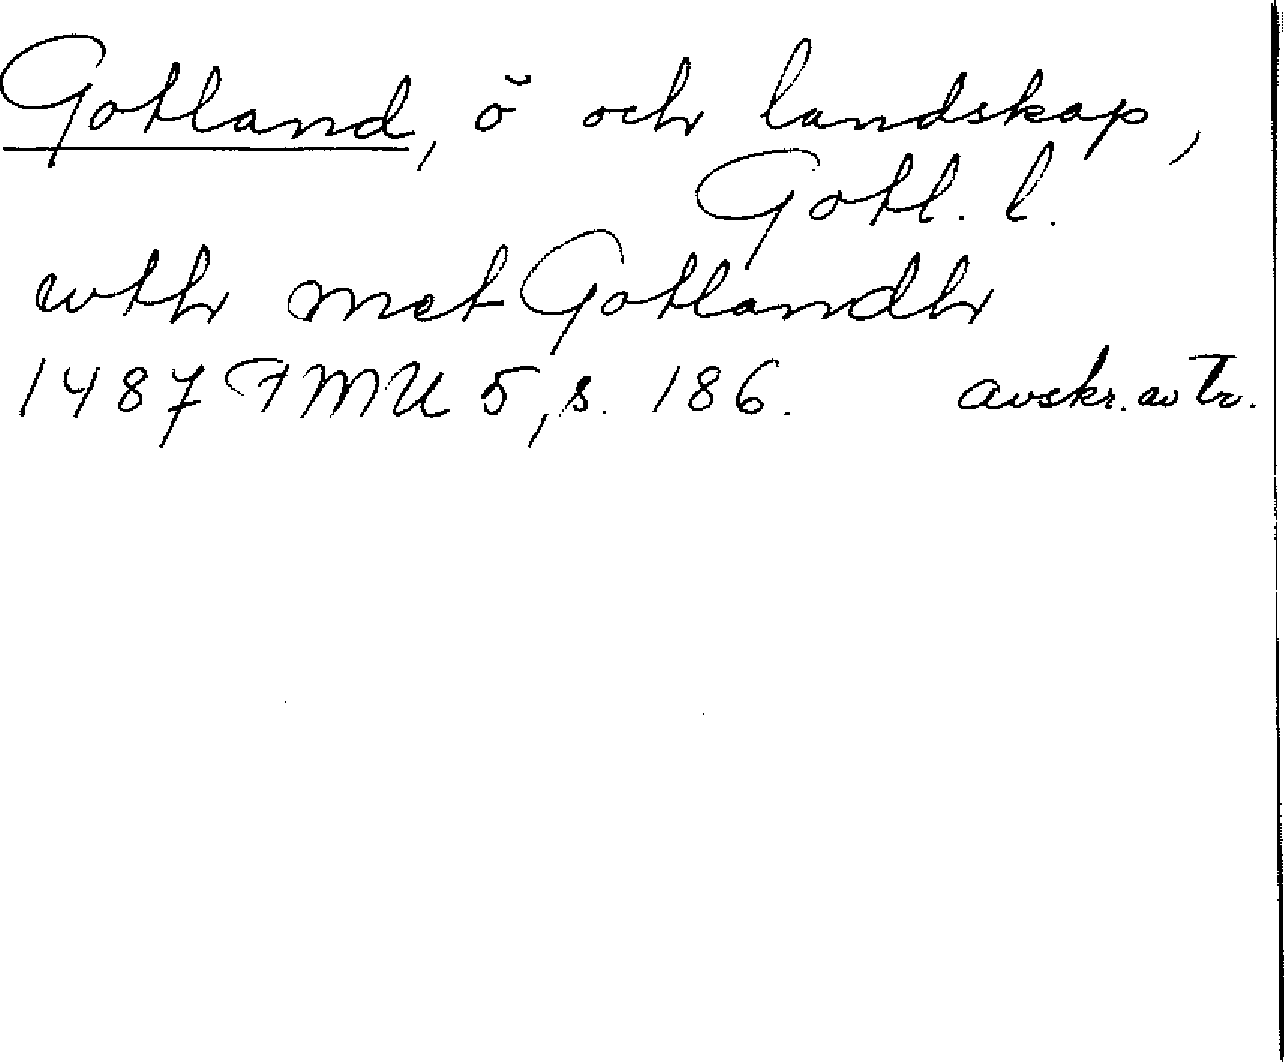 Gotland, ö och landskap,
Gotl. l.
wth met Gotlandh
1487 FMU 5, s. 186. avskr. av tr.